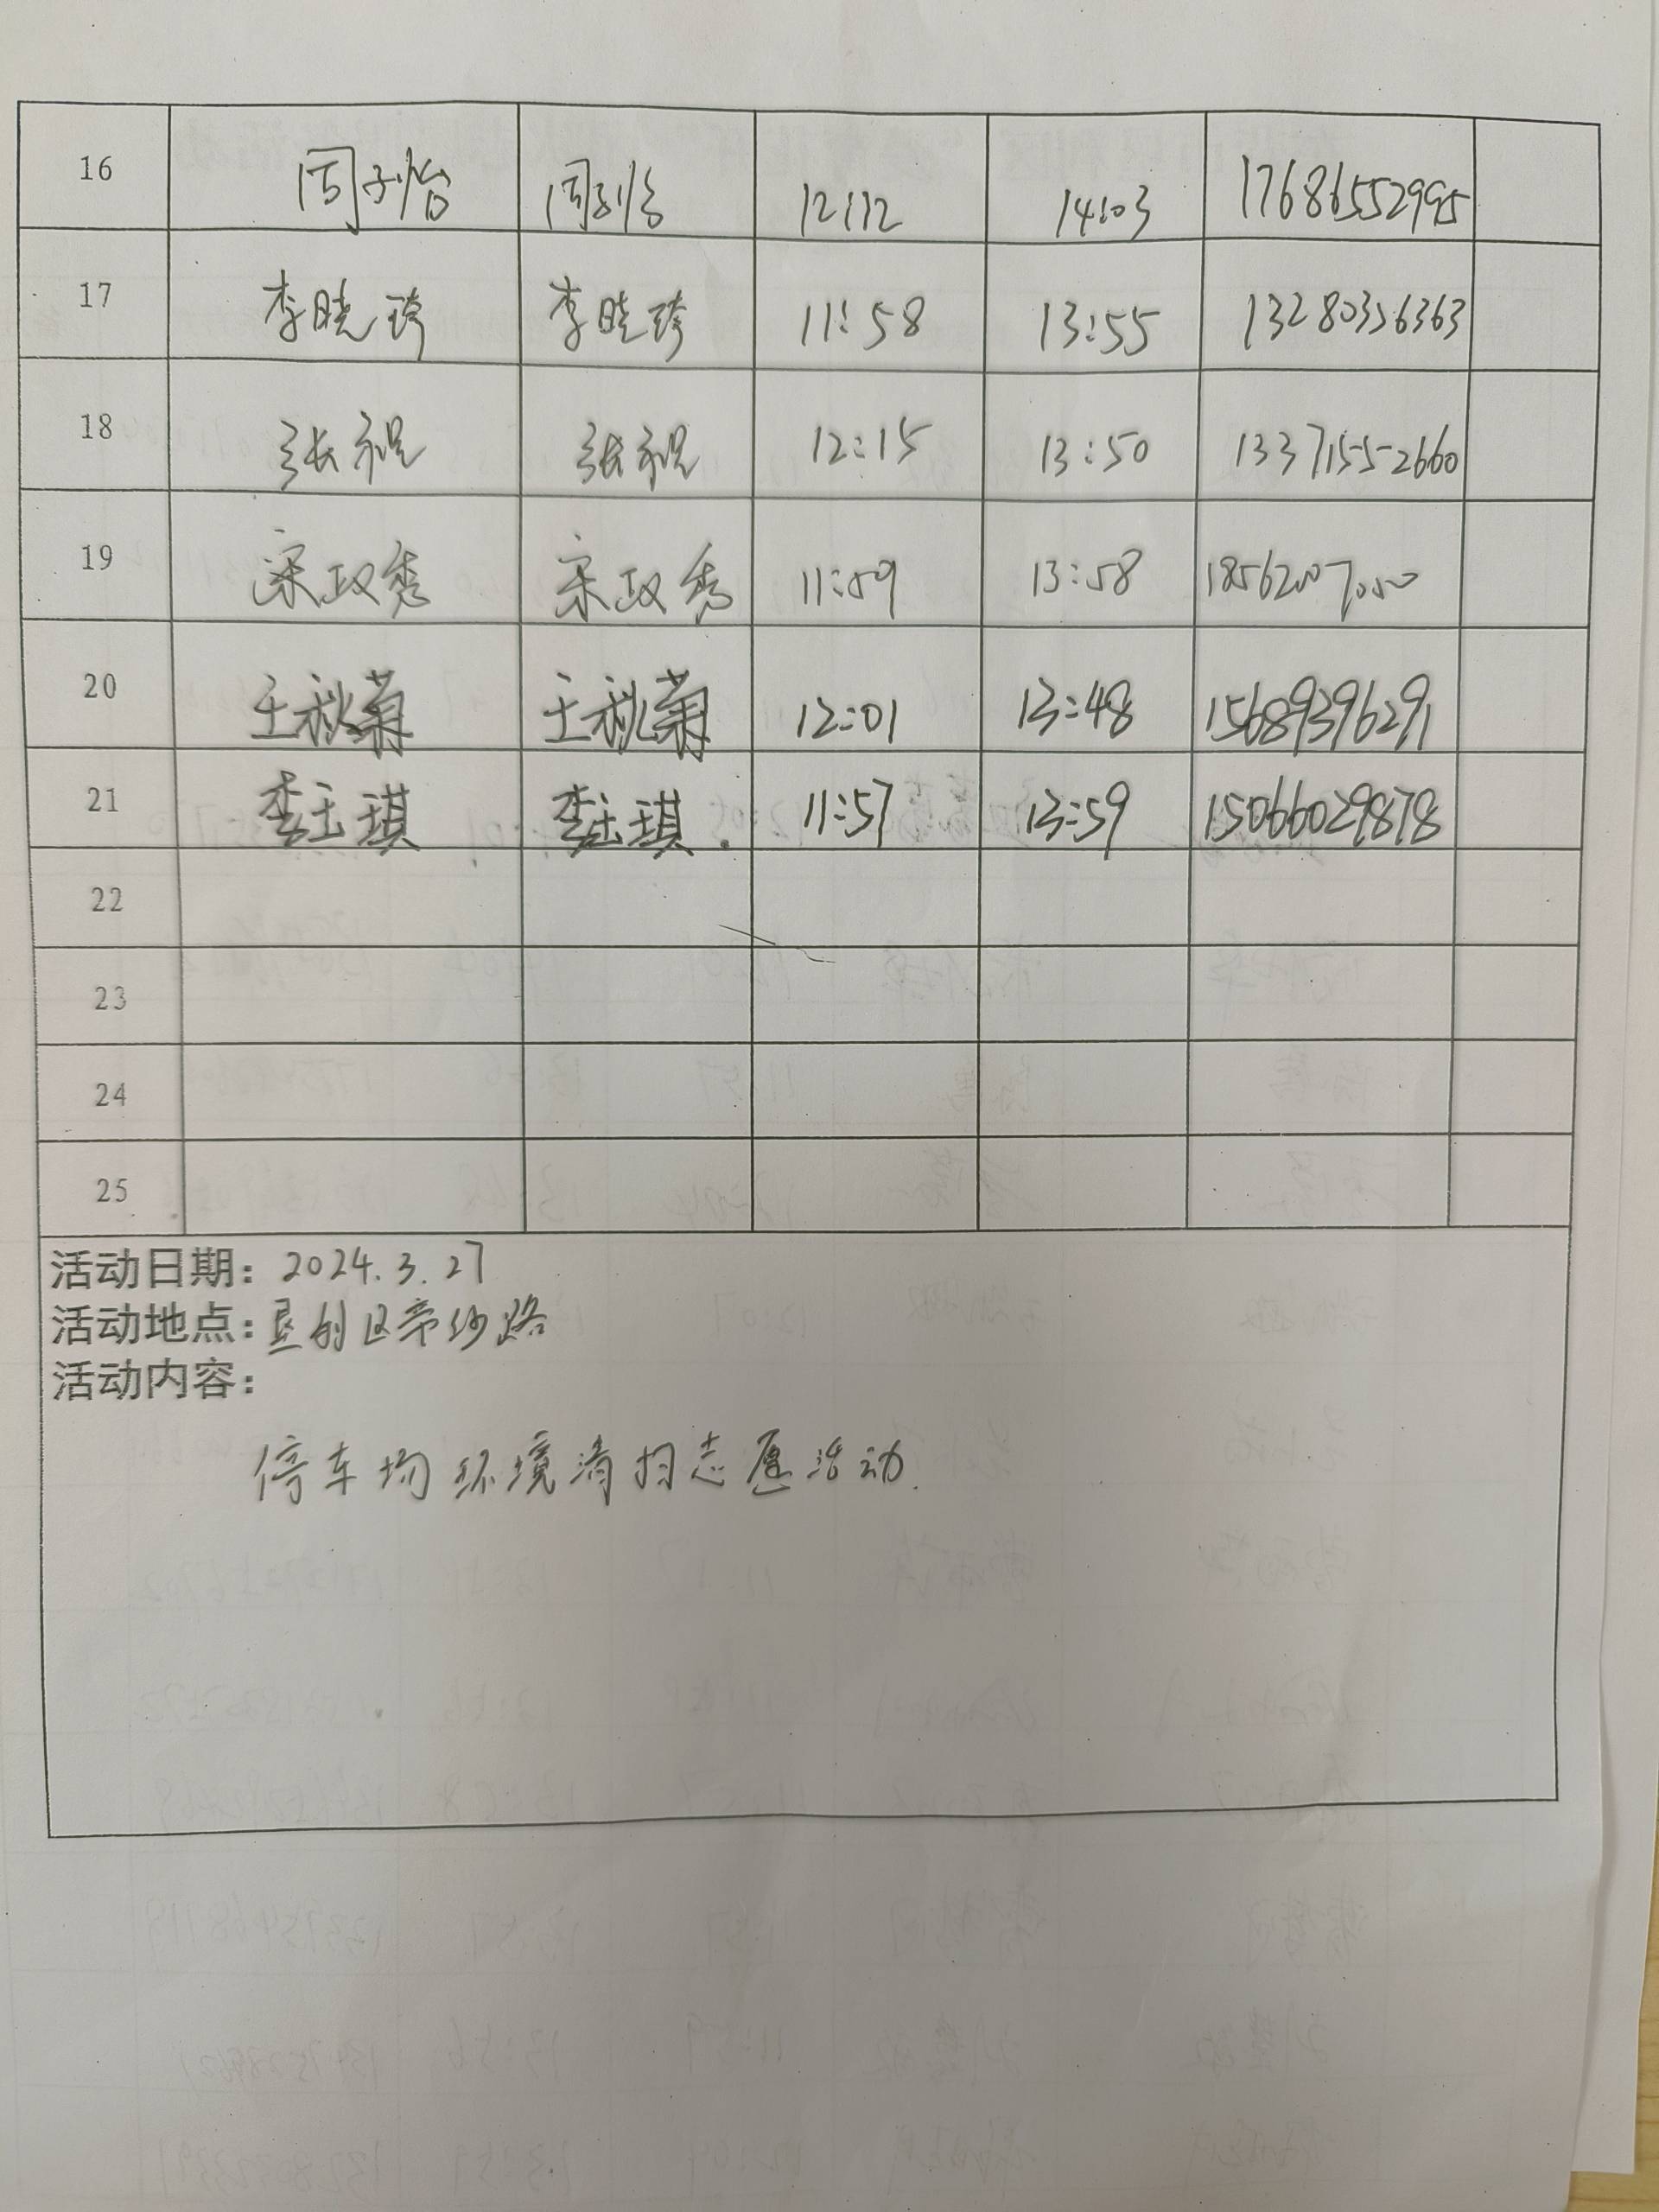 16 周子怡 周子怡 12:12 14:03 17686552995
17 李晓琦 李晓琦 11:58 13:55 13280356363
18 张祝 张祝 12:15 13:50 13371552660
19 宋政秀 宋政秀 11:59 13:58 18562007050
20 王秋菊 王秋菊 12:01 13:48 15689396291
21 李玉琪 李玉琪. 11:57 13:59 15066029878
22
23
24
25
活动日期: 2024.3.27
活动地点: 垦利区 路
活动内容:
停车场环境清扫志愿活动.